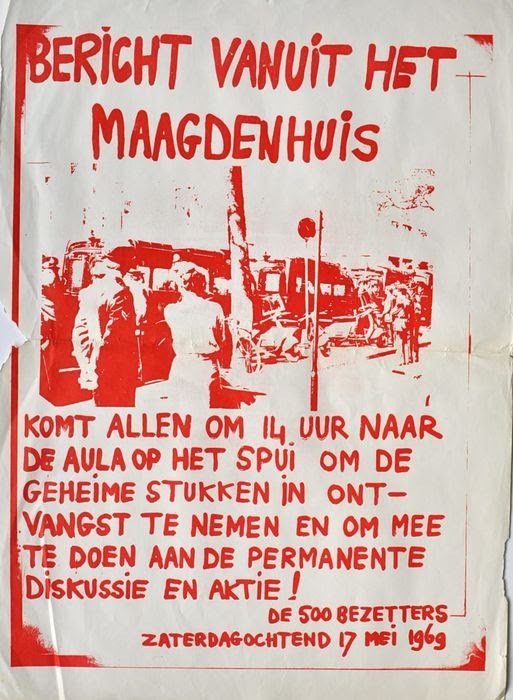 BERICHT VANUIT HET
MAAGDENHUIS
KOMT ALLEN OM 14 UUR NAAR
DE AULA OP HET SPUI OM DE
GEHEIME STUKKEN IN ONT-
VANGST TE NEMEN EN OM MEE
TE DOEN AAN DE PERMANENTE
DISKUSSIE EN AKTIE!
DE 500 BEZETTERS
ZATERDAGOCHTEND 17 MEI 1969